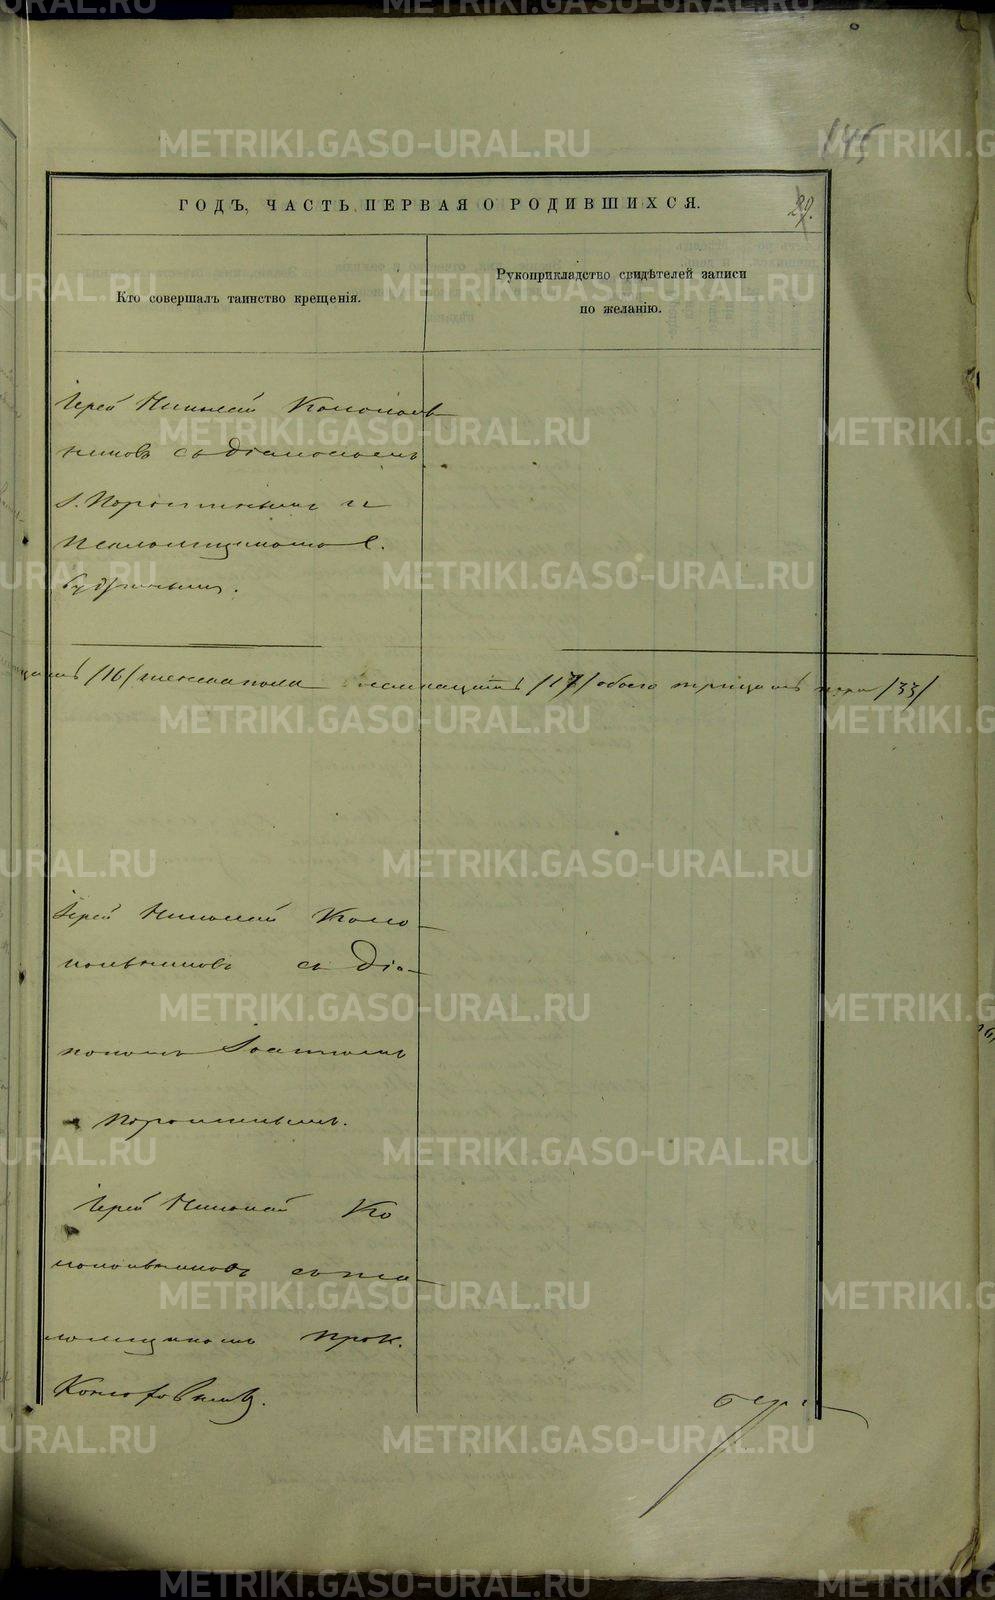 145
ГОДЪ, ЧАСТЬ ПЕРВАЯ О РОДИВШИХСЯ.
29.
Кто совершалъ таинство крещенія.
Рукоприкладство свидѣтелей записи
по желанію.
Іерей Николай Колоколь-
никовъ съ діакономъ
І. Порошинымъ и
псаломщикомъ С.
/16/ женска пола семнадцать /17/ обоего тридцать три /33/
Іерей Николай Коло-
кольниковъ съ діа-
кономъ Іоанномъ
Порошинымъ.
Іерей Николай Ко
локольниковъ съ пса-
ломщикомъ Прок.
METRIKI.GASO-URAL.RU